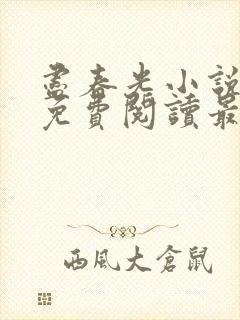 盡春光小說
免費閱讀最
西風大倉鼠